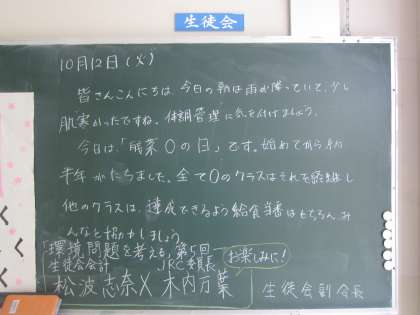 生徒会
10月12日(火)
皆さんこんにちは、今日の朝は雨が降っていて、少し
肌寒かったですね。体調管理に気を付けましょう。
今日は、「残菜0の日」です。始めてから約
半年がたちました。全て0のクラスはそれを継続し
他のクラスは、達成できるよう給食当番はもちろん、み
んなと協力しましょう
「環境問題を考える」第5回
生徒会会計 JRC委員長
お楽しみに!
松波志奈×木内万葉 生徒会副会長
く
く